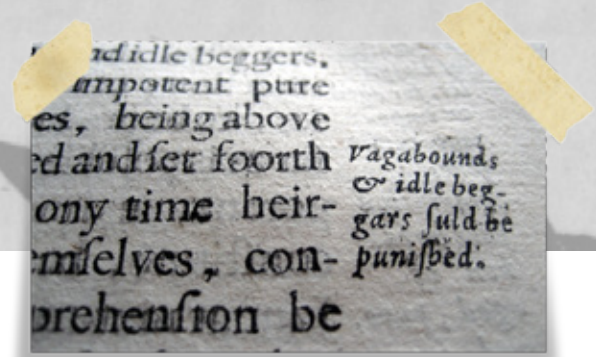 ad idle beggers,
impotent pure
es, being above
ed and ſet foorth
ony time heir-
emſelves, con-
prehenſion be
Vagabounds
& idle beg-
gars ſuld be
puniſhed.